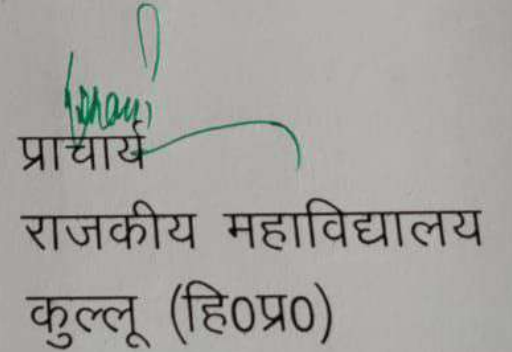 प्राचार्य
राजकीय महाविद्यालय
कुल्लू (हि०प्र०)